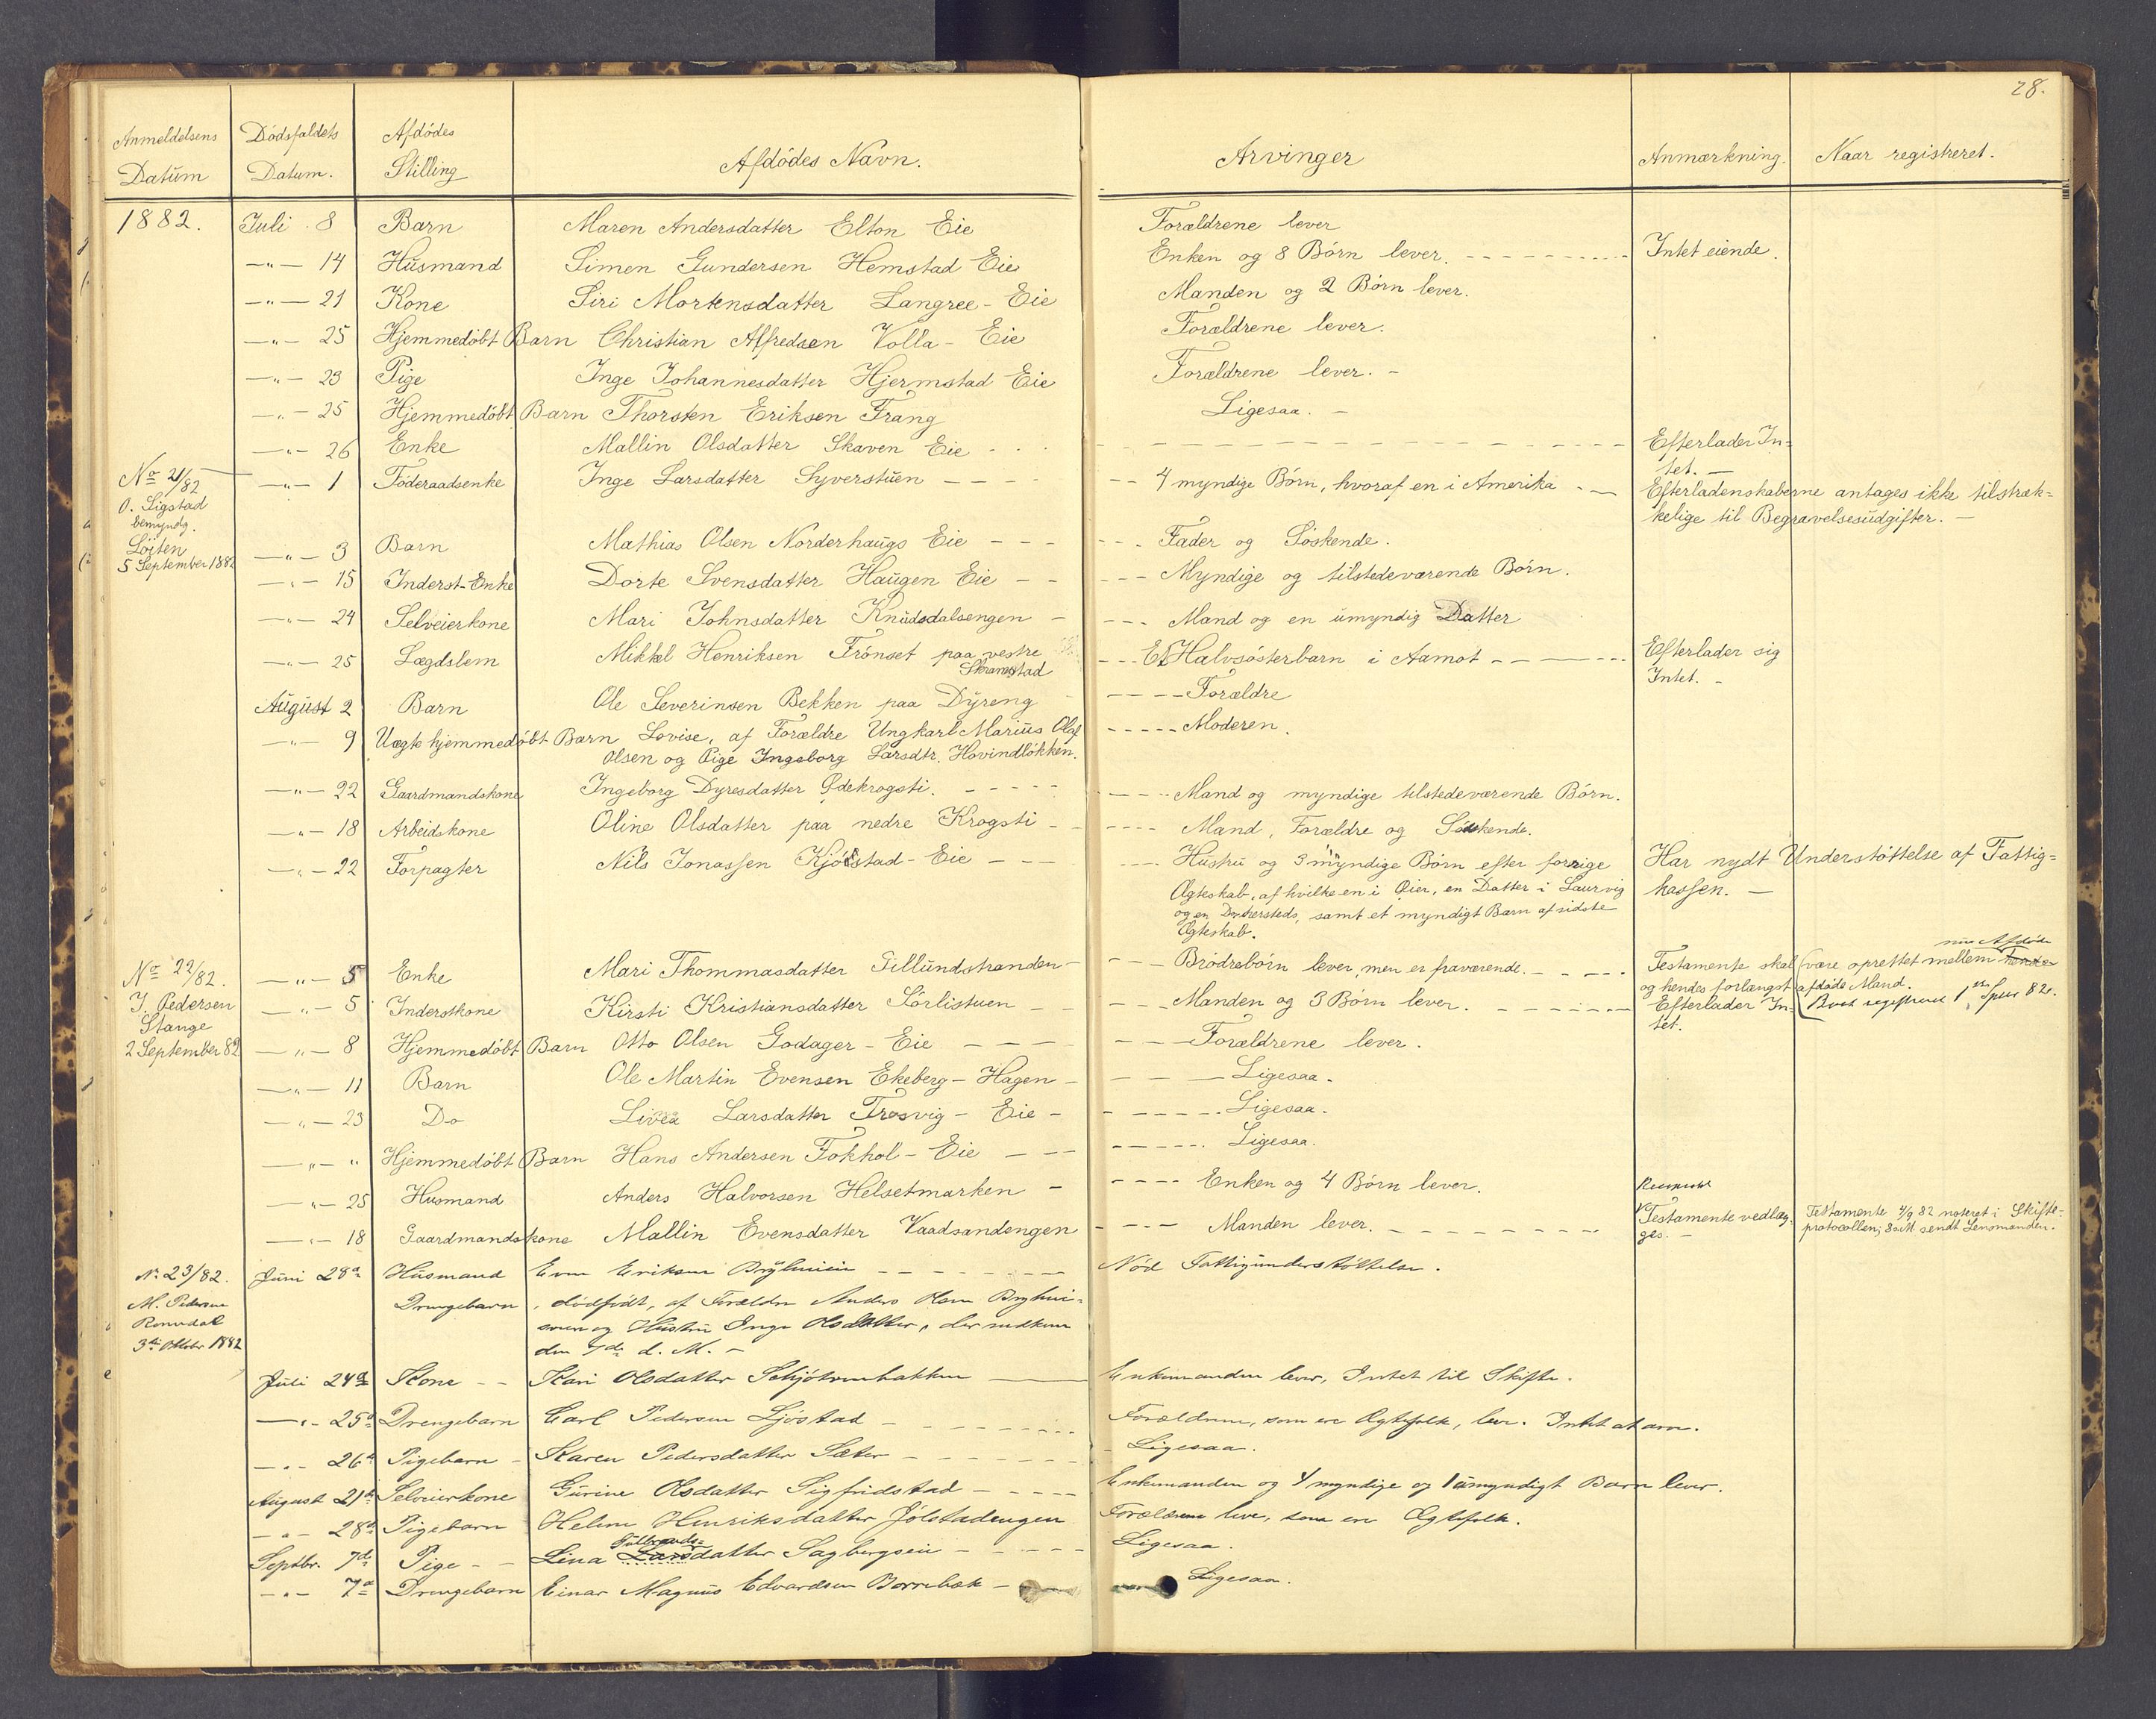 28.
Anmeldelsens Datum | Dödsfaldets Datum. | Afdödes Stilling | Afdödes Navn. | Arvinger | Anmærkning. | Naar registreret.
1882. Juli 8 Barn Maren Andersdatter Elton Eie Forældrene lever
—"— 14 Husmand Simen Gundersen Hemstad Eie Enken og 8 Börn lever. Intet eiende.
—"— 21 Kone Siri Mortensdatter Langree - Eie Manden og 2 Börn lever.
—"— 25 Hjemmedöbt Barn Christian Alfredsen Volla - Eie Forældrene lever.
—"— 23 Pige Inge Johannesdatter Hjermstad Eie Forældrene lever. -
—"— 25 Hjemmedöbt Barn Thorsten Eriksen Frang Ligesaa. -
—"— 26 Enke Mallin Olsdatter Skaven Eie Efterlader In=
tet. —
No 21/82 —"— 1 Föderaadsenke Inge Larsdatter Syverstuen 4 myndige Börn, hvoraf en i Amerika Efterladenskaberne antages ikke tilstræk=
O. Sigstad
kelige til Begravelsesudgifter. —
bemyndg.
Löiten —"— 3 Barn Mathias Olsen Norderhaugs Eie Fader og Söskende.
5 September 1882
—"— 15 Inderst-Enke Dorte Svensdatter Haugen Eie Myndige og tilstedeværende Börn.
—"— 24 Selveierkone Mari Johnsdatter Knudsdalsengen Mand og en umyndig Datter
—"— 25 Lægdslem Mikkel Henriksen Frönset paa vestre Et Halvsösterbarn i Aamot Efterlader sig
Skramstad Intet. -
August 2 Barn Ole Severinsen Bekken paa Dyreng Forældre
—"— 9 Uægte hjemmedöbt Barn Lovise, af Forældre Ungkarl Marius Olaf Moderen.
Olsen og Pige Ingeborg Larsdtr. Hovindlökken.
—"— 22 Gaardmandskone Ingeborg Dyresdatter Ödekrogsti. Mand og myndige tilstedeværende Börn.
—"— 18 Arbeidskone Oline Olsdatter paa nedre Krogsti Mand, Forældre og Söskende.
—"— 22 Forpagter Nils Jonassen Kjöstad - Eie Hustru og 3 myndige Börn efter forrige Har nydt Understöttelse af Fattig=
Ægteskab, af hvilke en i Öier, en Datter i Laurvig kassen. —
og en Do hersteds, samt et myndigt Barn af sidste
Ægteskab.
nu Afdöde
No 22/82. —"— 5 Enke Mari Thommasdatter Gillundstranden Brödrebörn lever, men er fraværende. Testamente skal være oprettet mellem
J. Pedersen
og hendes forlængst afdöde Mand.
—"— 5 Inderstkone Kirsti Kristiansdatter Sörlistuen Manden og 3 Börn lever. Efterlader In=
tet.
Stange
2 September 82 —"— 8 Hjemmedöbt Barn Otto Olsen Godager - Eie Forældrene lever.
—"— 11 Barn Ole Martin Evensen Ekeberg - Hagen Ligesaa.
—"— 23 Do Livea Larsdatter Frosvig - Eie Ligesaa.
—"— " Hjemmedöbt Barn Hans Andersen Fokhol - Eie Ligesaa.
—"— 25 Husmand Anders Halvorsen Helsetmarken Enken og 4 Börn lever.
—"— 18 Gaardmandskone Mallin Evensdatter Vaadsandengen Manden lever. Testamente vedlæg- Testamente 4/9 82 noteret i Skifte-
ges. - protocollen; sendt Lensmanden.
No 23/82. Juni 28de Husmand Even Eriksen Nöd Fattigunderstöttelse.
M. Pedersen Drengebarn, dödfödt, af Forældre Anders Olsen
Romedal og Hustru Inge Olsdatter, der nedkom
3die Oktober 1882 den 7de d. M. -
Juli 24de Kone Kari Olsdatter Enkemanden lever, Intet til Skifte.
—"— 25de Drengebarn Carl Pedersen Ljöstad Forældrene, som ere Ægtefolk, lever. Intet at arve.
—"— 26de Pigebarn Karen Pedersdatter Sæter Ligesaa.
August 21de Selveierkone Gurine Olsdatter Sigfridstad Enkemanden og 4 myndige og 1 umyndigt Barn lever.
—"— 28de Pigebarn Helene Henriksdatter Jölstadengen Forældrene leve, som ere Ægtefolk.
Septbr. 7de Pige Lina Larsdatter Sagbergseie Ligesaa.
—"— 7de Drengebarn Einar Magnus Edvardsen Borrebæk Ligesaa.